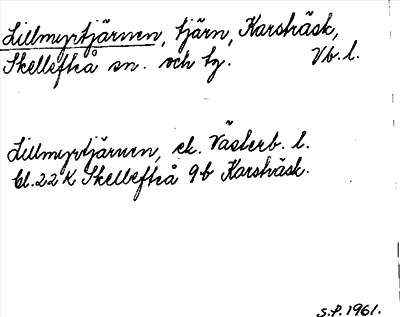 Lillmyrtjärnen, tjärn, Karsträsk,
Skellefteå sn. och tg. Vb. l.
Lillmyrtjärnen, ek. Västerb. l.
bl. 22 K Skellefteå 9b Karsträsk.
S.P. 1961.